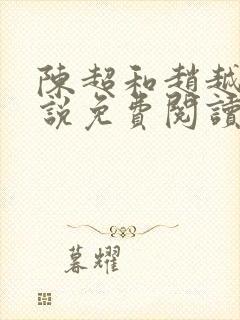 陳超和趙越
說免費閱讀
暮耀